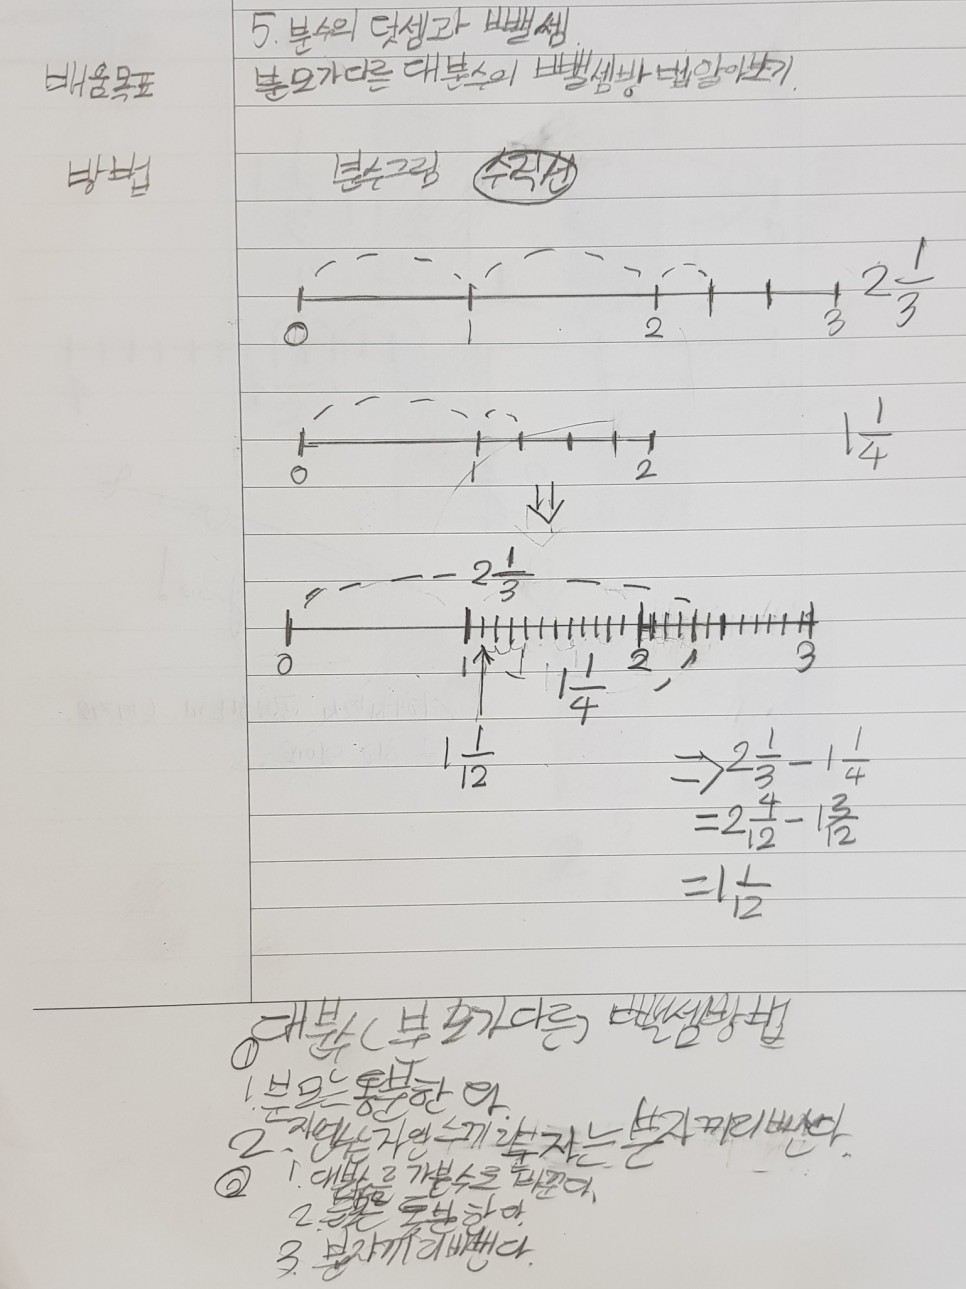 5. 분수의 덧셈과 뺄셈
배움목표 분모가다른 대분수의 뺄셈방법알아보기.
방법 분수그림 수직선
2 1/3
0 1 2 3
1 1/4
0 1 2
⇓
2 1/3
0 1 2 3
1 1/4
1 1/12
⇒ 2 1/3 - 1 1/4
= 2 4/12 - 1 3/12
= 1 1/12
대분수(분모가다른) 뺄셈방법
①
1. 분모는 통분한다.
2. 자연수는자연수끼리 분자는분자끼리뺀다.
② 1. 대분수를 가분수로 바꾼다.
2. 통분한다.
3. 분자끼리뺀다.